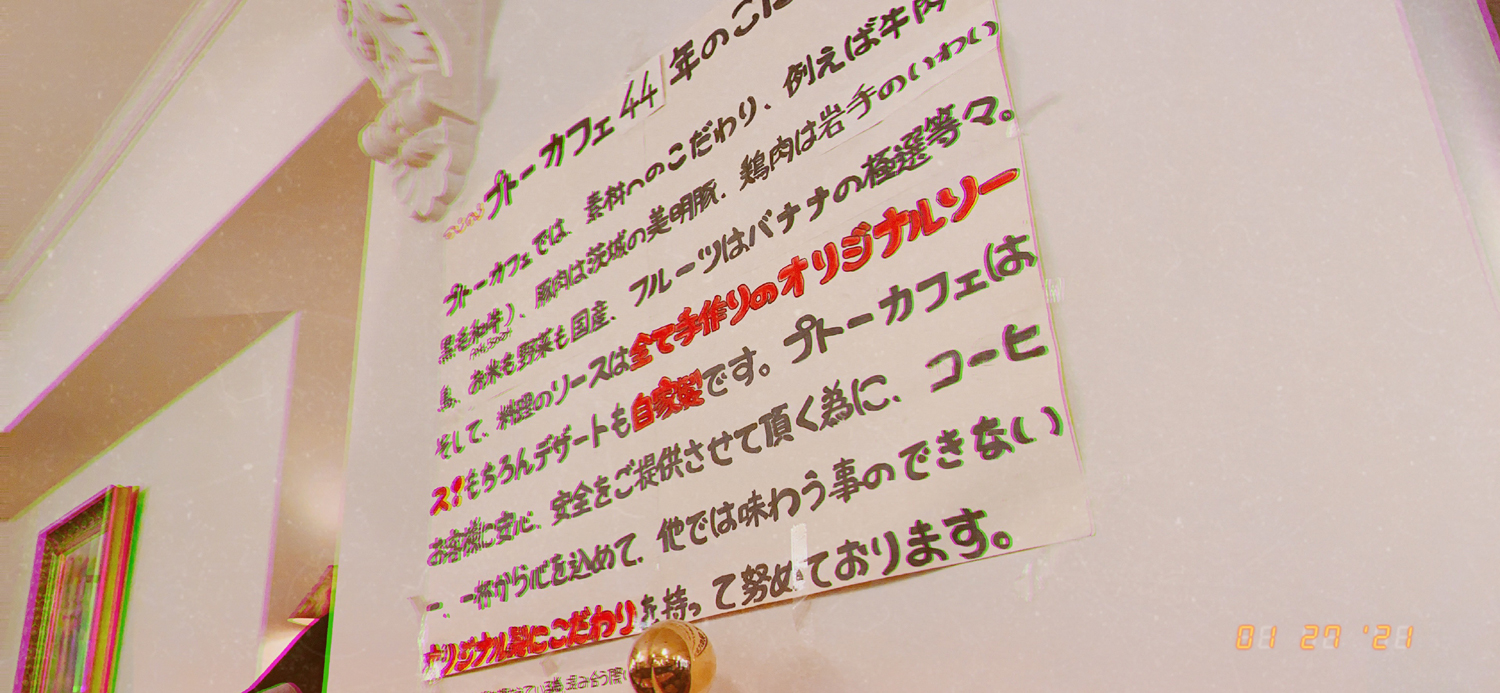 プトーカフェ44年のこだ
プトーカフェでは、素材へのこだわり、例えば牛肉
黒毛和牛)、豚肉は茨城の美明豚、鶏肉は岩手のいわい
鳥、お米も野菜も国産、フルーツはバナナの極選等々。
そして、料理のソースは全て手作りのオリジナルソー
ス!もちろんデザートも自家製です。プトーカフェは
お客様に安心、安全をご提供させて頂く為に、コーヒ
ー、一杯から心を込めて、他では味わう事のできない
オリジナル製にこだわりを持って努めております。
み合う際
01 27 '21